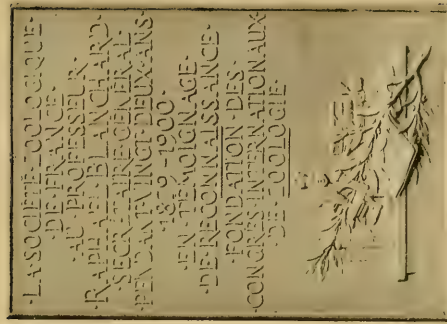 ·LA·SOCIÉTÉ·ZOOLOGIQUE·
·DE·FRANCE·
·AU·PROFESSEUR·
·RAPHAËL·BLANCHARD·
·SECRÉTAIRE·GÉNÉRAL·
·PENDANT·VINGT·DEUX·ANS·
·1879-1900·
·EN·TÉMOIGNAGE·
·DE·RECONNAISSANCE·
·FONDATION·DES·
·CONGRÈS·INTERNATIONAUX·
·DE·ZOOLOGIE·